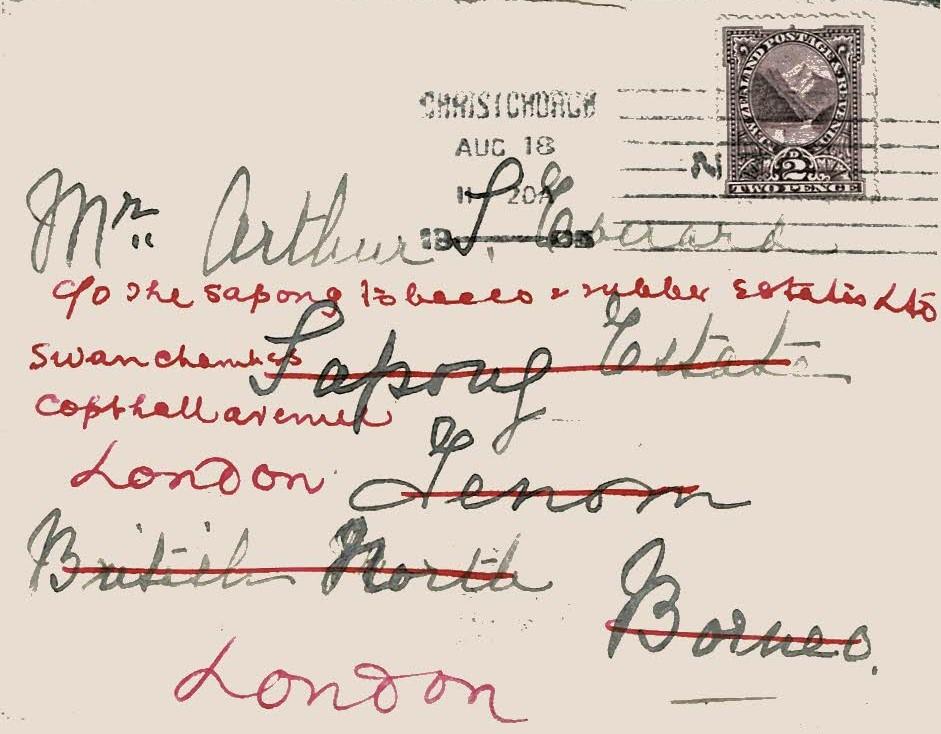 NEW ZEALAND POSTAGE & REVENUE
2D
TWO PENCE
CHRISTCHURCH
AUG 18
11 20A
N
Mr. Arthur L. Everard
c/o The Sapong Tobacco & rubber Estates Ltd
Swan chambers
Sapong Estate
Copthall avenue
London
Tenom
British North
Borneo.
London